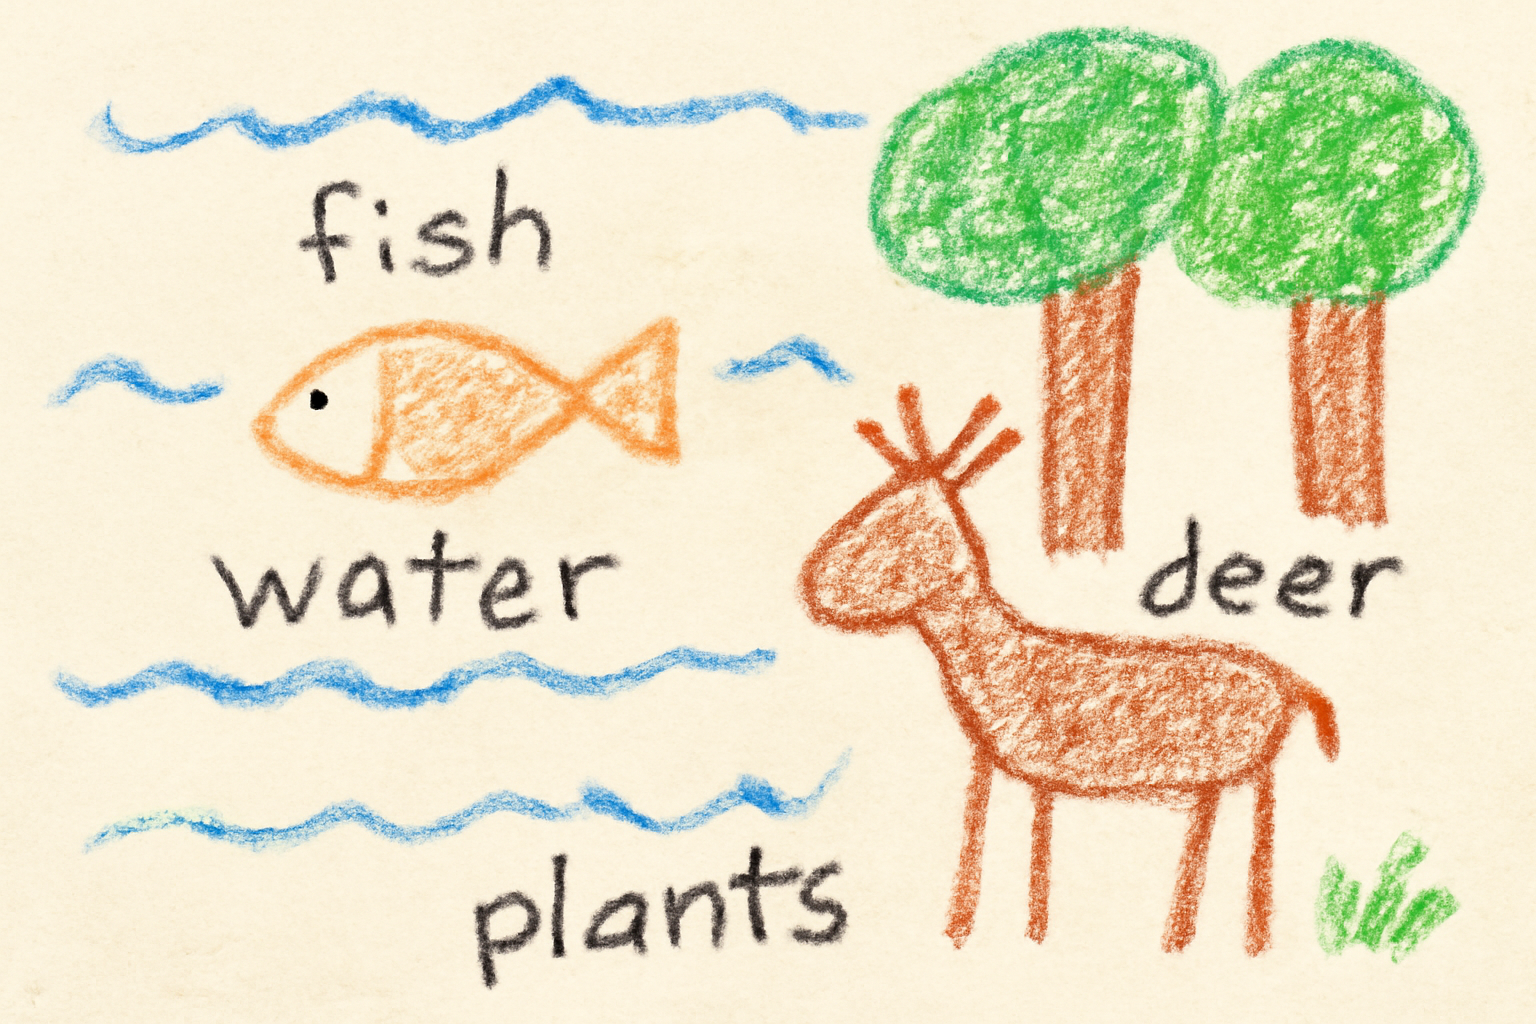 fish
water
deer
plants